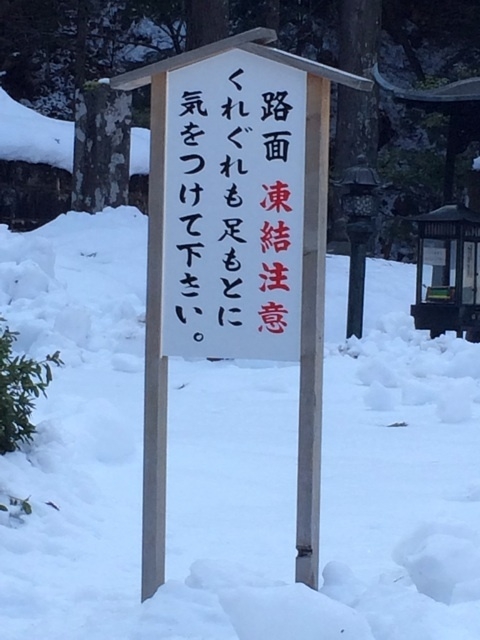 路面 凍結注意
くれぐれも足もとに
気をつけて下さい。